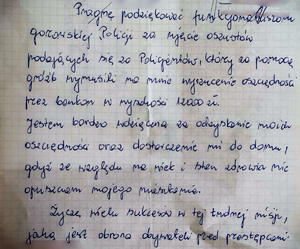 Pragnę podziękować funkcjonariuszom
gorzowskiej Policji za ujęcie oszustów
podających się za Policjantów, którzy za pomocą
gróźb wymusili na mnie wyrzucenie oszczędności
przez balkon w wysokości 12000 zł.
Jestem bardzo wdzięczna za odzyskanie moich
oszczędności oraz dostarczenie mi do domu,
gdyż ze względu na wiek i stan zdrowia nie
opuszczam mojego mieszkania.
Życzę wielu sukcesów w tej trudnej misji,
jaką jest obrona obywateli przed przestępcami